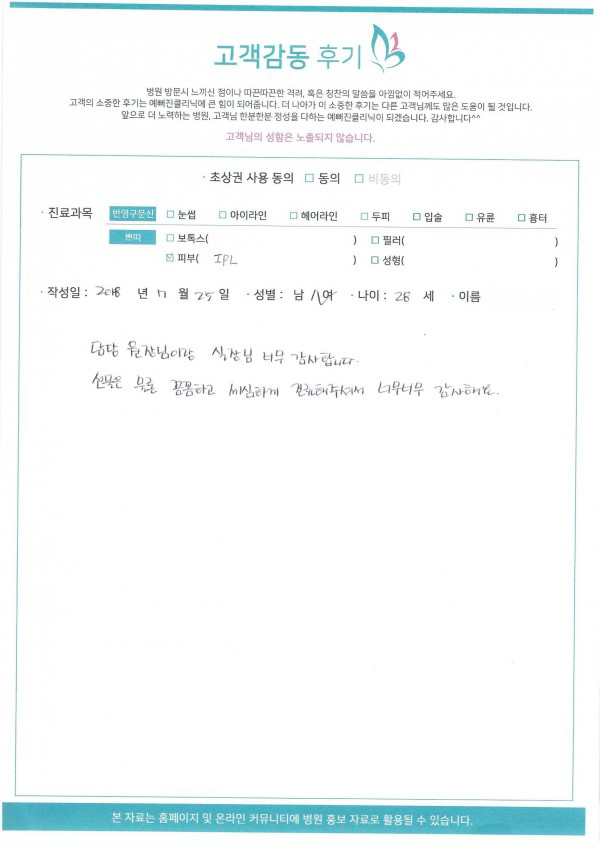 고객감동 후기
병원 방문시 느끼신 점이나 따끈따끈한 격려, 혹은 칭찬의 말씀을 아낌없이 적어주세요.
고객의 소중한 후기는 예뻐진클리닉에 큰 힘이 되어줍니다. 더 나아가 이 소중한 후기는 다른 고객님께도 많은 도움이 될 것입니다.
앞으로 더 노력하는 병원, 고객님 한분한분 정성을 다하는 예뻐진클리닉이 되겠습니다. 감사합니다^^
고객님의 성함은 노출되지 않습니다.
· 초상권 사용 동의 □ 동의 □ 비동의
· 진료과목 반영구문신 □ 눈썹 □ 아이라인 □ 헤어라인 □ 두피 □ 입술 □ 유륜 □ 흉터
쁘띠 □ 보톡스( ) □ 필러( )
☑ 피부( IPL ) □ 성형( )
· 작성일 : 2018 년 7 월 25 일 · 성별 : 남 / 여 · 나이 : 28 세 · 이름
담당 원장님이랑 실장님 너무 감사합니다.
물론 꼼꼼하고 세심하게 진료해주셔서 너무너무 감사해요.
본 자료는 홈페이지 및 온라인 커뮤니티에 병원 홍보 자료로 활용될 수 있습니다.